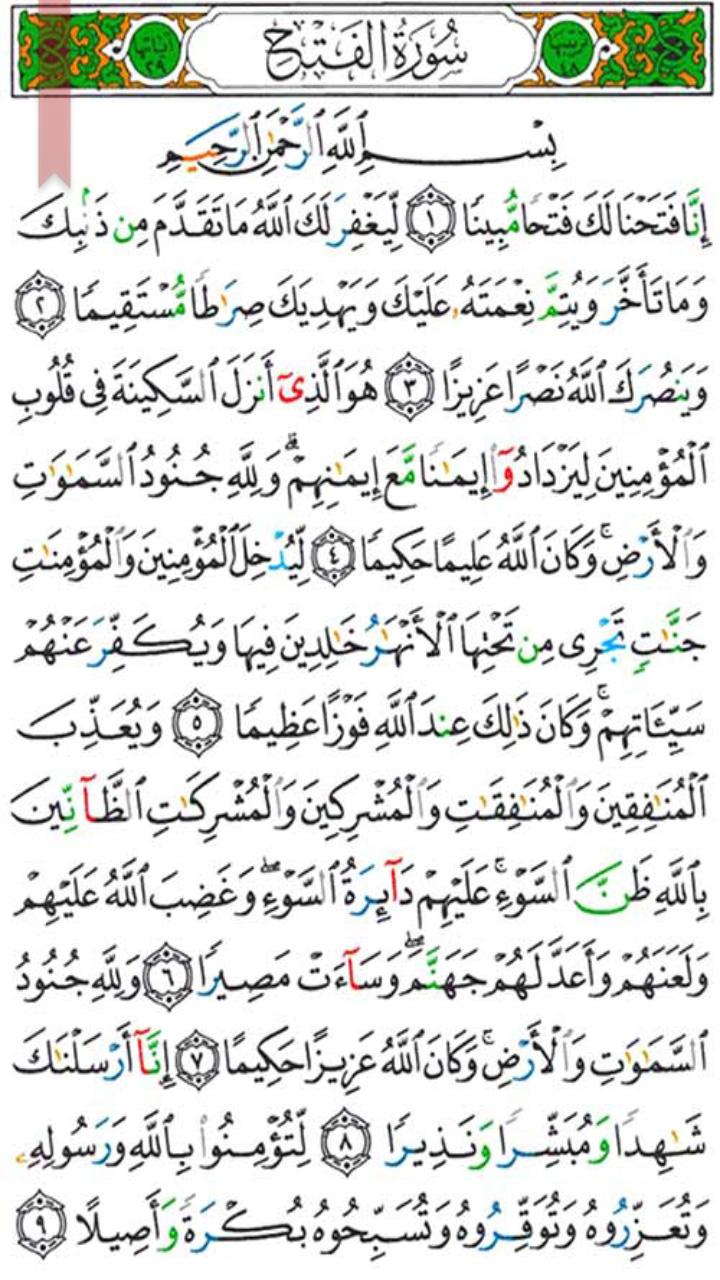 ترتيبها ٤٨ سُورَةُ الفَتْحِ آياتها ٢٩
بِسْمِ ٱللَّهِ ٱلرَّحْمَٰنِ ٱلرَّحِيمِ
إِنَّا فَتَحْنَا لَكَ فَتْحًا مُّبِينًا ١ لِّيَغْفِرَ لَكَ ٱللَّهُ مَا تَقَدَّمَ مِن ذَنۢبِكَ
وَمَا تَأَخَّرَ وَيُتِمَّ نِعْمَتَهُۥ عَلَيْكَ وَيَهْدِيَكَ صِرَٰطًا مُّسْتَقِيمًا ٢
وَيَنصُرَكَ ٱللَّهُ نَصْرًا عَزِيزًا ٣ هُوَ ٱلَّذِىٓ أَنزَلَ ٱلسَّكِينَةَ فِى قُلُوبِ
ٱلْمُؤْمِنِينَ لِيَزْدَادُوٓا۟ إِيمَٰنًا مَّعَ إِيمَٰنِهِمْ ۗ وَلِلَّهِ جُنُودُ ٱلسَّمَٰوَٰتِ
وَٱلْأَرْضِ ۚ وَكَانَ ٱللَّهُ عَلِيمًا حَكِيمًا ٤ لِّيُدْخِلَ ٱلْمُؤْمِنِينَ وَٱلْمُؤْمِنَٰتِ
جَنَّٰتٍ تَجْرِى مِن تَحْتِهَا ٱلْأَنْهَٰرُ خَٰلِدِينَ فِيهَا وَيُكَفِّرَ عَنْهُمْ
سَيِّـَٔاتِهِمْ ۚ وَكَانَ ذَٰلِكَ عِندَ ٱللَّهِ فَوْزًا عَظِيمًا ٥ وَيُعَذِّبَ
ٱلْمُنَٰفِقِينَ وَٱلْمُنَٰفِقَٰتِ وَٱلْمُشْرِكِينَ وَٱلْمُشْرِكَٰتِ ٱلظَّآنِّينَ
بِٱللَّهِ ظَنَّ ٱلسَّوْءِ ۚ عَلَيْهِمْ دَآئِرَةُ ٱلسَّوْءِ ۖ وَغَضِبَ ٱللَّهُ عَلَيْهِمْ
وَلَعَنَهُمْ وَأَعَدَّ لَهُمْ جَهَنَّمَ ۖ وَسَآءَتْ مَصِيرًا ٦ وَلِلَّهِ جُنُودُ
ٱلسَّمَٰوَٰتِ وَٱلْأَرْضِ ۚ وَكَانَ ٱللَّهُ عَزِيزًا حَكِيمًا ٧ إِنَّآ أَرْسَلْنَٰكَ
شَٰهِدًا وَمُبَشِّرًا وَنَذِيرًا ٨ لِّتُؤْمِنُوا۟ بِٱللَّهِ وَرَسُولِهِۦ
وَتُعَزِّرُوهُ وَتُوَقِّرُوهُ وَتُسَبِّحُوهُ بُكْرَةً وَأَصِيلًا ٩